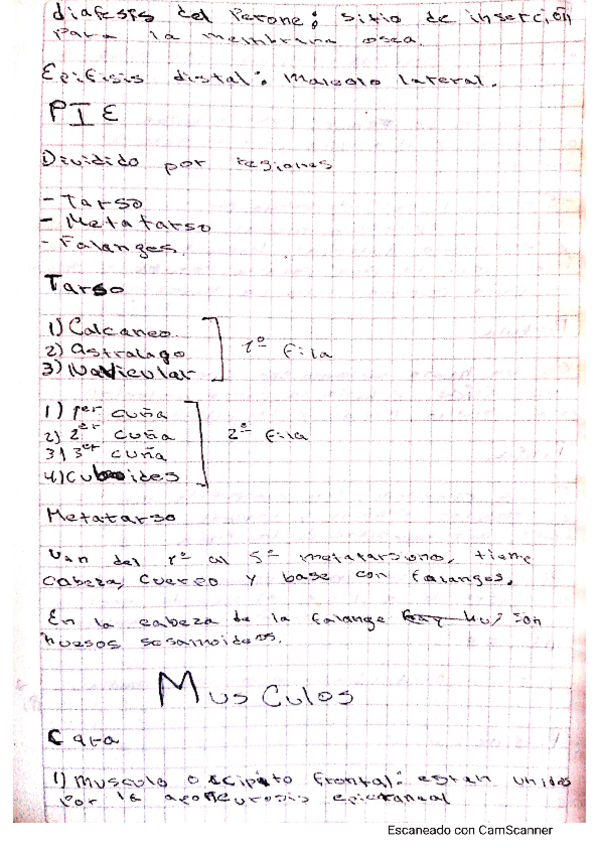 diafesis del Perone: sitio de inserción
para la membrana osea.
Epifisis distal: Maleolo lateral.
PIE
Dividido por regiones
- Tarso
- Metatarso
- Falanges.
Tarso
1) Calcaneo.
2) Astralago
3) Navicular
1º Fila
1) 1er cuña
2) 2er cuña
3) 3er cuña
4) Cuboides
2º Fila
Metatarso
Van del 1º al 5º metatarsiano, tiene
cabeza, cuerpo y base con falanges.
En la cabeza de la falange
huesos sesamoideos.
Musculos
Cara
1) Musculo occipito frontal: estan unidos
por la aponeurosis epicraneal
Escaneado con CamScanner